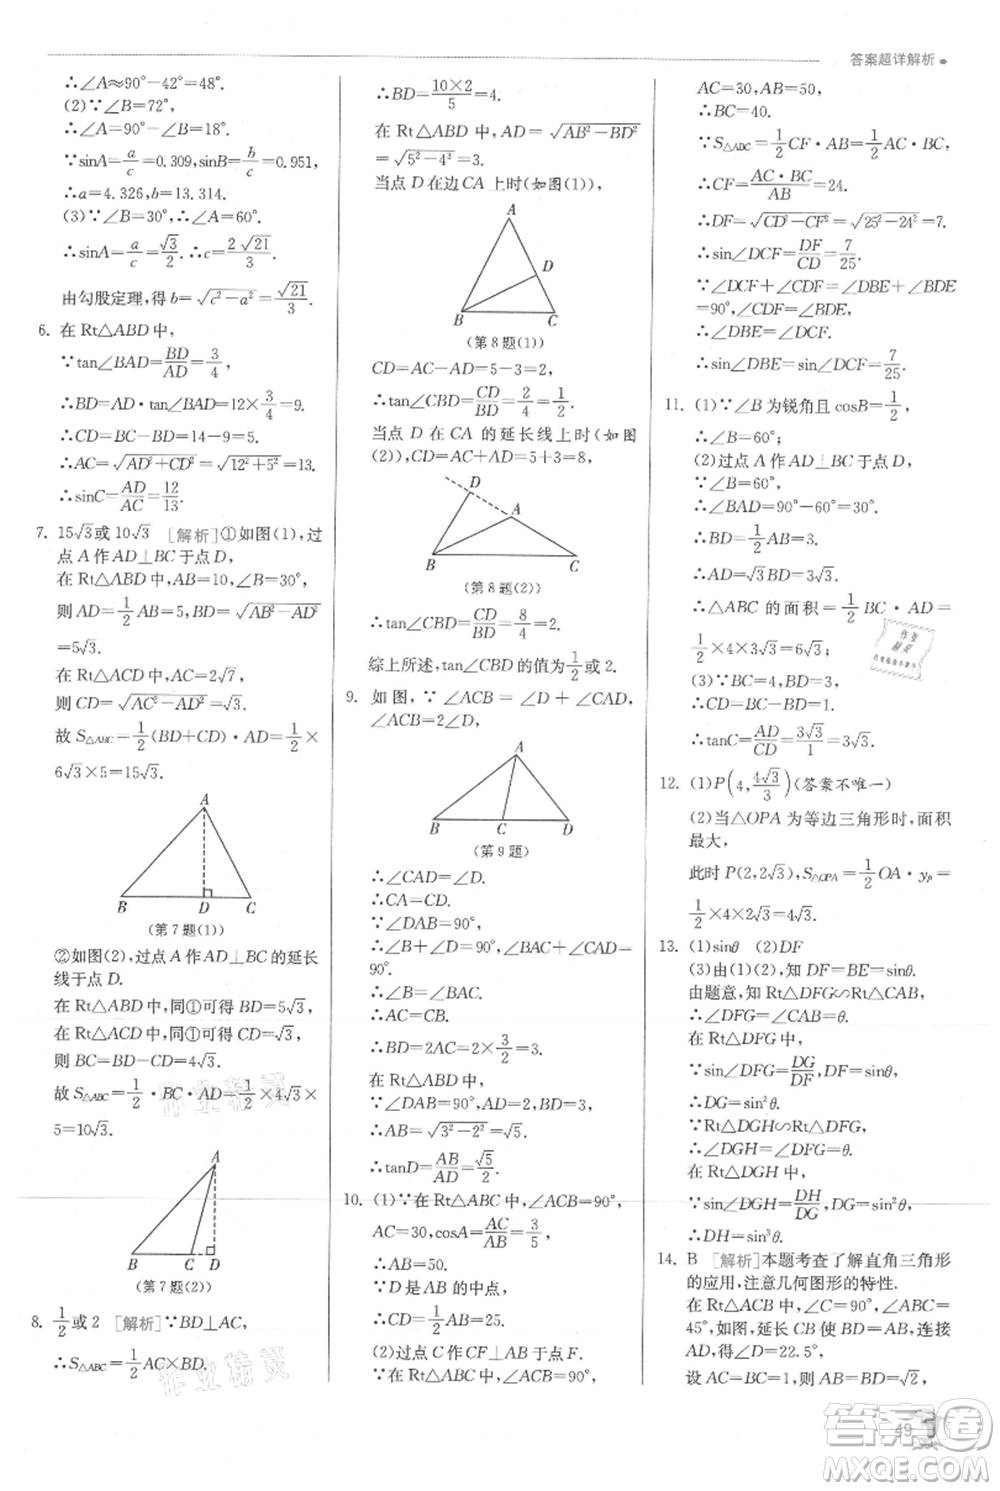 答案超详解析
∴∠A≈90°−42°=48°.
(2)∵∠B=72°,
∴∠A=90°−∠B=18°.
∵sinA=a/c=0.309,sinB=b/c=0.951,
∴a=4.326,b=13.314.
(3)∵∠B=30°,∴∠A=60°.
∴sinA=a/c=√3/2.∴c=2√21/3.
由勾股定理,得b=√(c²−a²)=√21/3.
6. 在Rt△ABD中,
∵tan∠BAD=BD/AD=3/4,
∴BD=AD·tan∠BAD=12×3/4=9.
∴CD=BC−BD=14−9=5.
∴AC=√(AD²+CD²)=√(12²+5²)=13.
∴sinC=AD/AC=12/13.
7. 15√3或10√3 [解析]①如图(1),过
点A作AD⊥BC于点D,
在Rt△ABD中,AB=10,∠B=30°,
则AD=1/2AB=5,BD=√(AB²−AD²)
=5√3.
在Rt△ACD中,AC=2√7,
则CD=√(AC²−AD²)=√3.
故S△ABC=1/2(BD+CD)·AD=1/2×
6√3×5=15√3.
A
B D C
(第7题(1))
②如图(2),过点A作AD⊥BC的延长
线于点D.
在Rt△ABD中,同①可得BD=5√3,
在Rt△ACD中,同①可得CD=√3,
则BC=BD−CD=4√3.
故S△ABC=1/2·BC·AD=1/2×4√3×
5=10√3.
A
B C D
(第7题(2))
8. 1/2或2 [解析]∵BD⊥AC,
∴S△ABC=1/2AC×BD.
∴BD=10×2/5=4.
在Rt△ABD中,AD=√(AB²−BD²)=
√(5²−4²)=3.
当点D在边CA上时(如图(1)),
A
D
B C
(第8题(1))
CD=AC−AD=5−3=2,
∴tan∠CBD=CD/BD=2/4=1/2.
当点D在CA的延长线上时(如图
(2)),CD=AC+AD=5+3=8.
D
A
B C
(第8题(2))
∴tan∠CBD=CD/BD=8/4=2.
综上所述,tan∠CBD的值为1/2或2.
9. 如图,∵∠ACB=∠D+∠CAD,
∠ACB=2∠D,
A
B C D
(第9题)
∴∠CAD=∠D.
∴CA=CD.
∵∠DAB=90°,
∴∠B+∠D=90°,∠BAC+∠CAD=
90°.
∴∠B=∠BAC.
∴AC=CB.
∴BD=2AC=2×3/2=3.
∵AC=3/2,AD=2,
∴AB=√(3²−2²)=√5.
∴tanD=AB/AD=√5/2.
10. (1)∵在Rt△ABC中,∠ACB=90°,
AC=30,cosA=AC/AB=3/5,
∴AB=50.
∵D是AB的中点,
∴CD=1/2AB=25.
(2)过点C作CF⊥AB于点F.
∵在Rt△ABC中,∠ACB=90°,
AC=30,AB=50,
∴BC=40.
∵S△ABC=1/2CF·AB=1/2AC·BC.
∴CF=AC·BC/AB=24.
∴DF=√(CD²−CF²)=√(25²−24²)=7.
∴sin∠DCF=DF/CD=7/25.
∵∠DCF+∠CDF=∠DBE+∠BDE
=90°,∠CDF=∠BDE,
∴∠DBE=∠DCF.
∴sin∠DBE=sin∠DCF=7/25.
11. (1)∵∠B为锐角且cosB=1/2,
∴∠B=60°;
(2)过点A作AD⊥BC于点D,
∵∠B=60°,
∴∠BAD=90°−60°=30°.
∴BD=1/2AB=3.
∴AD=√3BD=3√3.
∴△ABC的面积=1/2BC·AD=
1/2×4×3√3=6√3;
(3)∵BC=4,BD=3,
∴CD=BC−BD=1.
∴tanC=AD/CD=3√3/1=3√3.
12. (1)P(4,4√3/3)(答案不唯一)
(2)当△OPA为等边三角形时,面积
最大,
此时P(2,2√3),S△OPA=1/2OA·yP=
1/2×4×2√3=4√3.
13. (1)sinθ (2)DF
(3)由(1)(2),知DF=BE=sinθ.
由题意,知Rt△DFG∽Rt△CAB,
∴∠DFG=∠CAB=θ.
在Rt△DFG中,
∵sin∠DFG=DG/DF=sinθ,
∴DG=sin²θ.
∵Rt△DGH∽Rt△DFG,
∴∠DGH=∠DFG=θ.
在Rt△DGH中,
∵sin∠DGH=DH/DG=sinθ,
∴DH=sin³θ.
14. B [解析]本题考查了解直角三角形
的应用,注意几何图形的特性.
在Rt△ACB中,∠C=90°,∠ABC=
45°,如图,延长CB使BD=AB,连接
AD,得∠D=22.5°,
设AC=BC=1,则AB=BD=√2,
作业精灵
作业精灵
49
答案圈
MXQE.COM